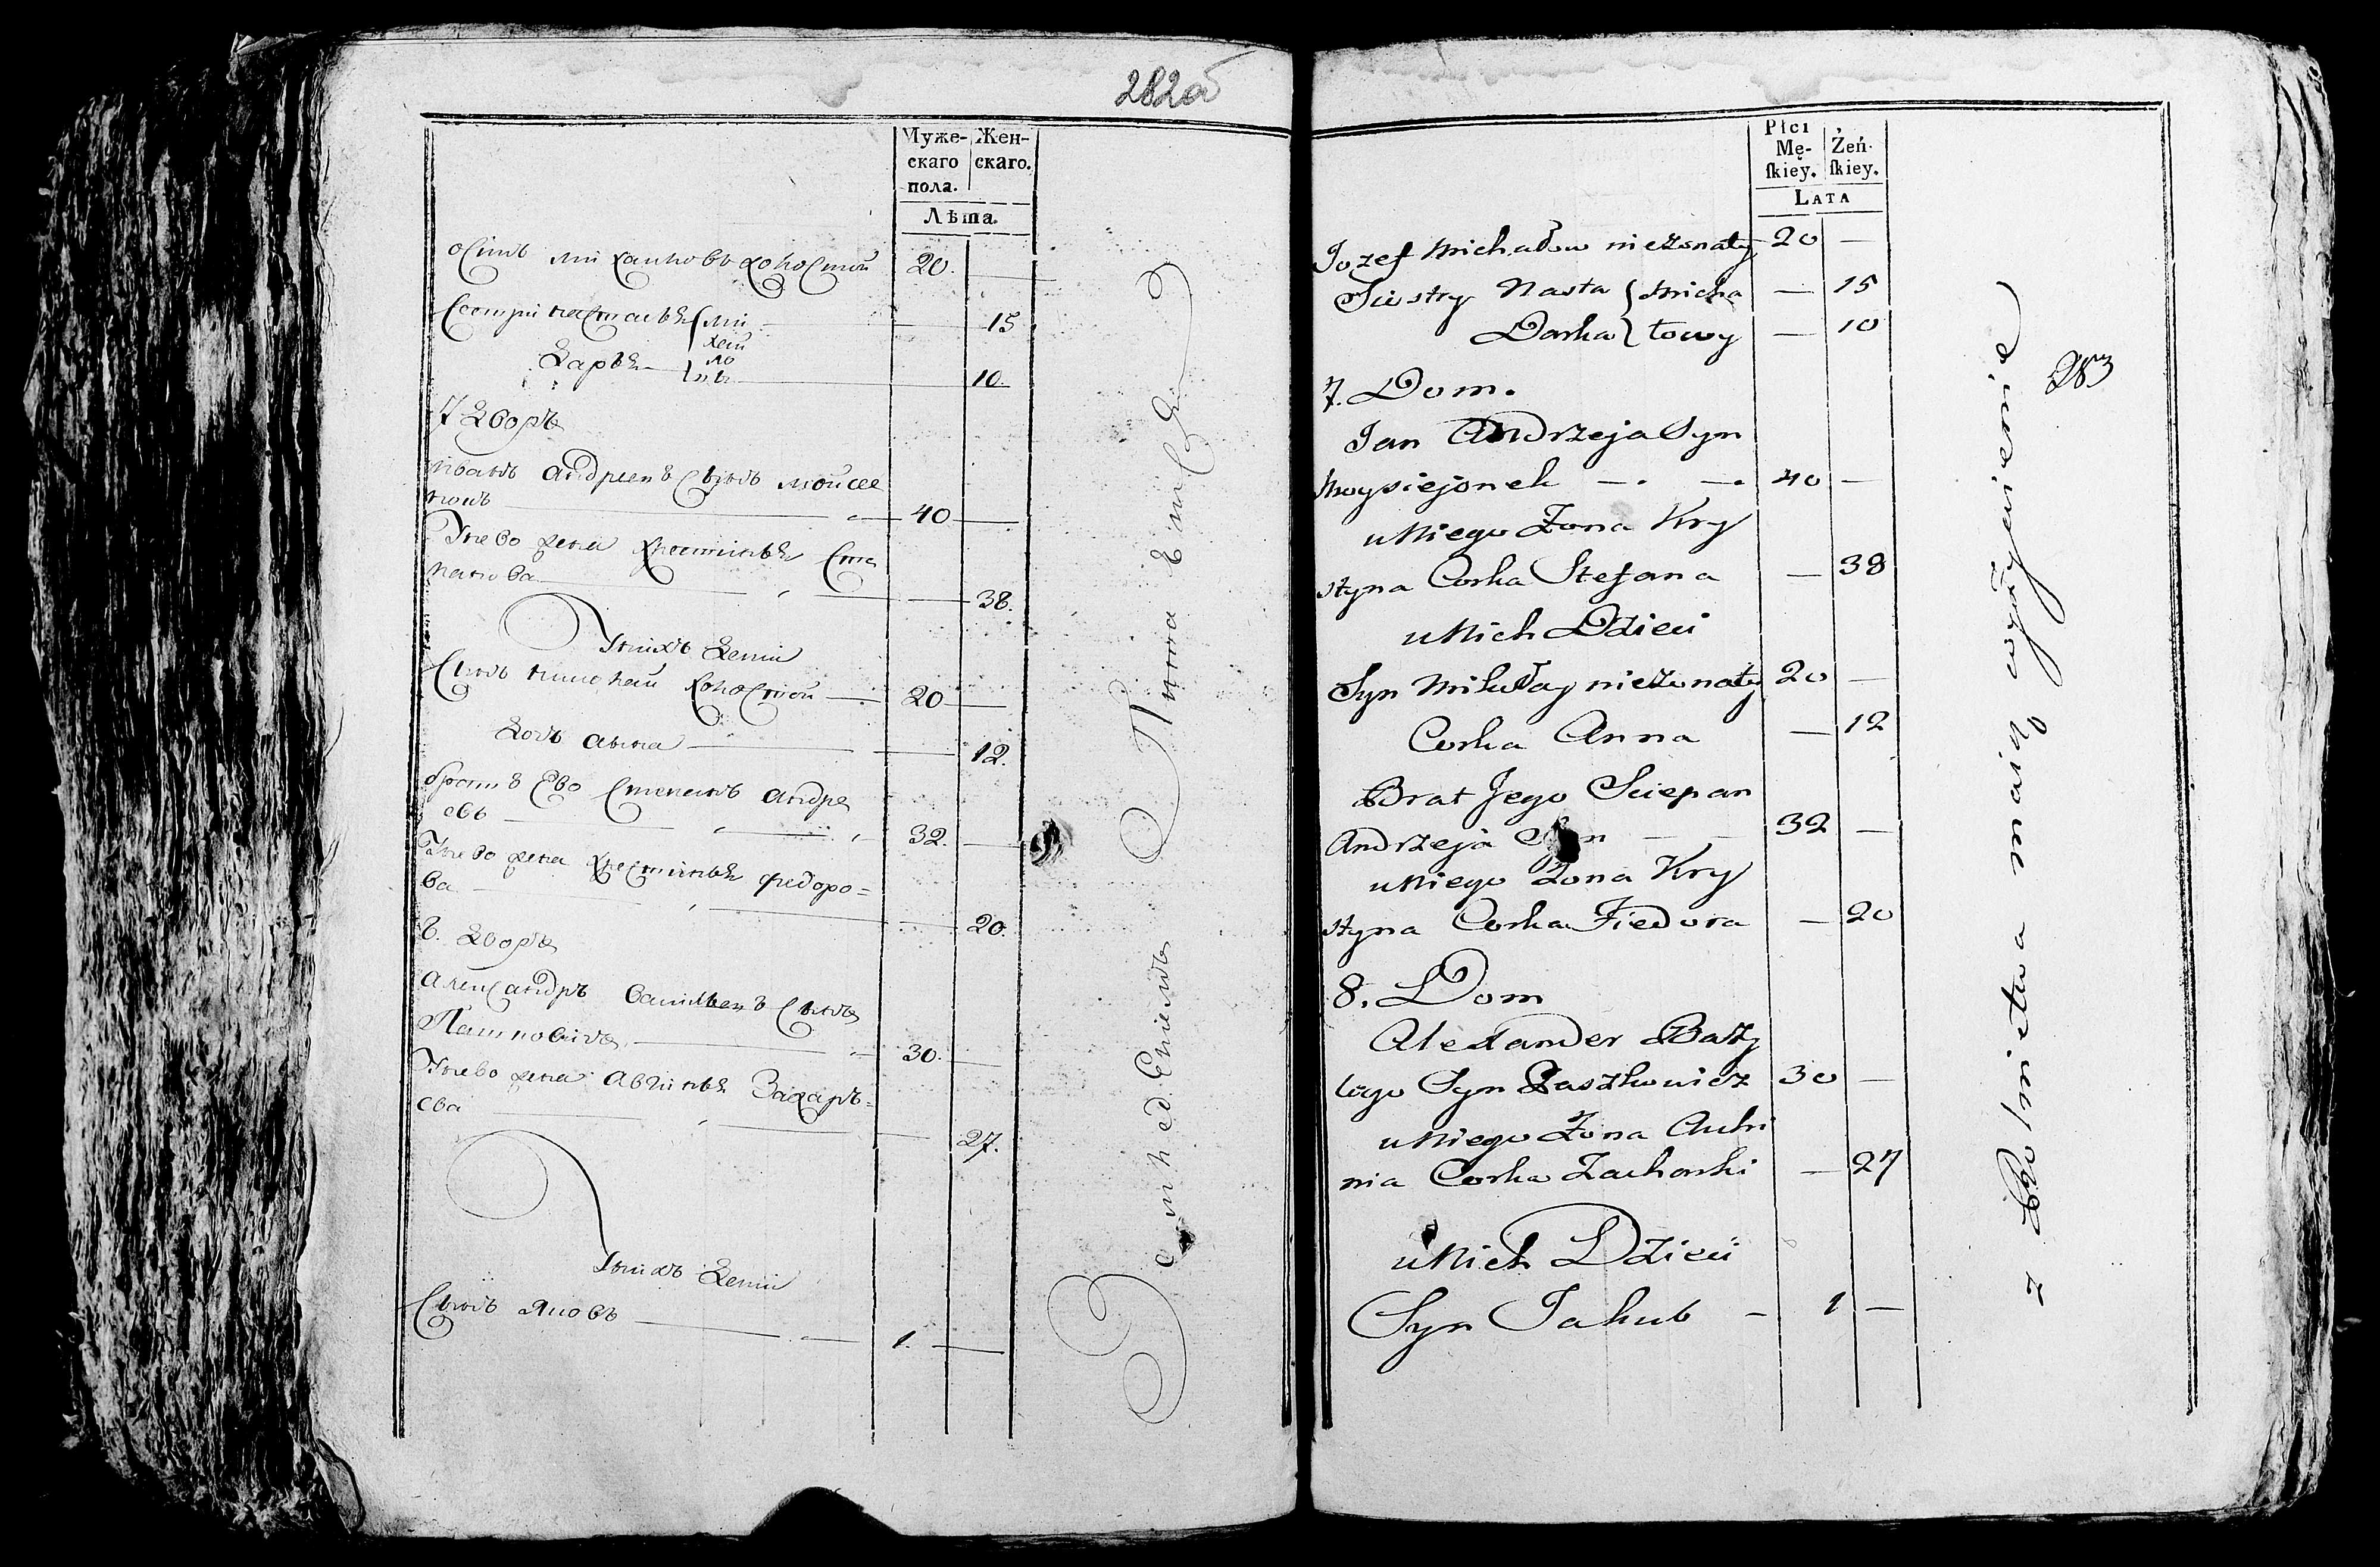 282об
Муже- Жен-
скаго скаго.
пола.
Лѣта.
осипъ михайловъ холостой 20.
Сестры настасья ми 15
хай
Дарья ло
вы 10.
7 Дворъ
иванъ андреевъ Сынъ мойсее
нокъ 40
Унево жена Христинья Сте
панова 38.
Унихъ Дети
Сынъ николай холостой 20
Дочь анна 12.
братъ Ево Степанъ андре
евъ 32.
Унево жена христинья федоро=
ва 20.
8. Дворъ
александръ васильевъ Сынъ
Пашковичъ 30.
Унево жена Авгинья Захарь=
ева 27.
Унихъ Дети
Сынъ яковъ 1.
Земледелиемъ Питаются
Płci
Mę- Żeń-
ſkiey. ſkiey.
LATA
Jozef Michałow nieżonaty 20 —
Siestry Nasta { Micha — 15
Darka } łowy — 10
7. Dom.
Jan Andrzeja Syn
Moysiejonek —. —. 40 —
u Niego Żona Kry
styna Corka Stefana — 38
u Nich Dzieci
Syn Mikołay nieżonaty 20 —
Corka Anna — 12
Brat Jego Sciepan
Andrzeja Syn — — 32 —
u Niego Żona Kry
styna Corka Fiedora — 20
8. Dom
Alexander Bazy
lego Syn Paszkowicz 30 —
u Niego Żona Auhi
nia Corka Zacharki — 27
u Nich Dzieci
Syn Jakub — 1 —
z Rolnictwa maią wyżywienie
283